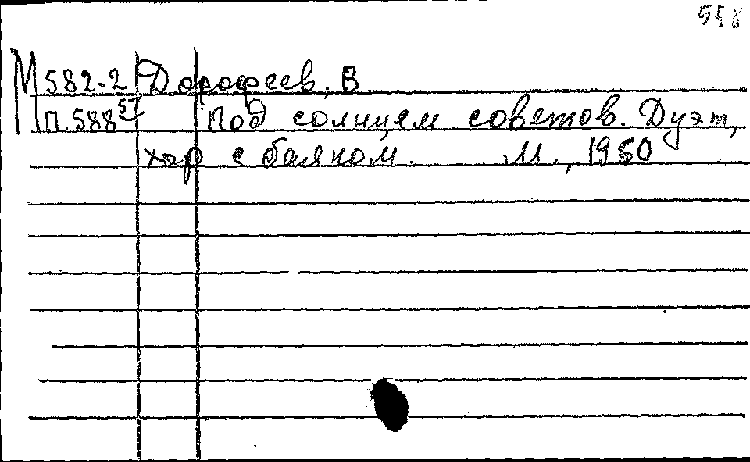 558
М 582-2 Дорофеев, В
П.588 57 Под солнцем советов. Дуэт,
хор с баяном. М., 1950